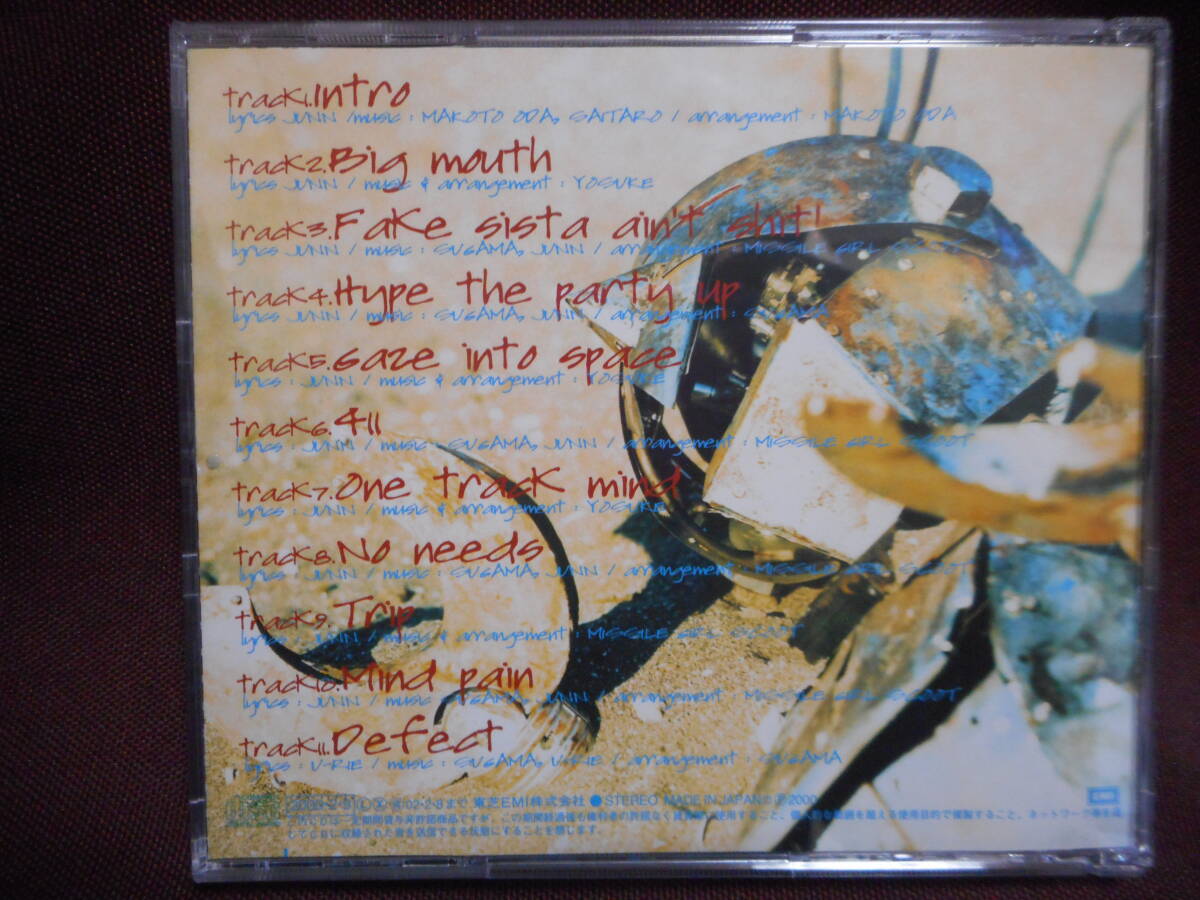 track1.Intro
lyrics JUNN /music : MAKOTO ODA, SAITARO / arrangement : MAKOTO ODA
track2.Big mouth
lyrics JUNN / music & arrangement : YOSUKE
track3.Fake sista ain't shit!
lyrics JUNN / music : SUGAMA, JUNN / arrangement : MISSILE GIRL SCOOT
track4.Hype the party up
lyrics JUNN / music : SUGAMA, JUNN / arrangement : SUGAMA
track5.Gaze into space
lyrics : JUNN / music & arrangement : YOSUKE
track6.411
lyrics : JUNN / music : SUGAMA, JUNN / arrangement : MISSILE GIRL SCOOT
track7.One track mind
lyrics : JUNN / music & arrangement : YOSUKE
track8.No needs
lyrics : JUNN / music : SUGAMA, JUNN / arrangement : MISSILE GIRL SCOOT
track9.Trip
lyrics : JUNN / music & arrangement : MISSILE GIRL SCOOT
track10.Mind pain
lyrics : JUNN / music : SUGAMA, JUNN / arrangement : MISSILE GIRL SCOOT
track11.Defect
lyrics : U-RIE / music : SUGAMA, U-RIE / arrangement : SUGAMA
02・2・8まで 東芝EMI株式会社 ● STEREO MADE IN JAPAN Ⓟ2000